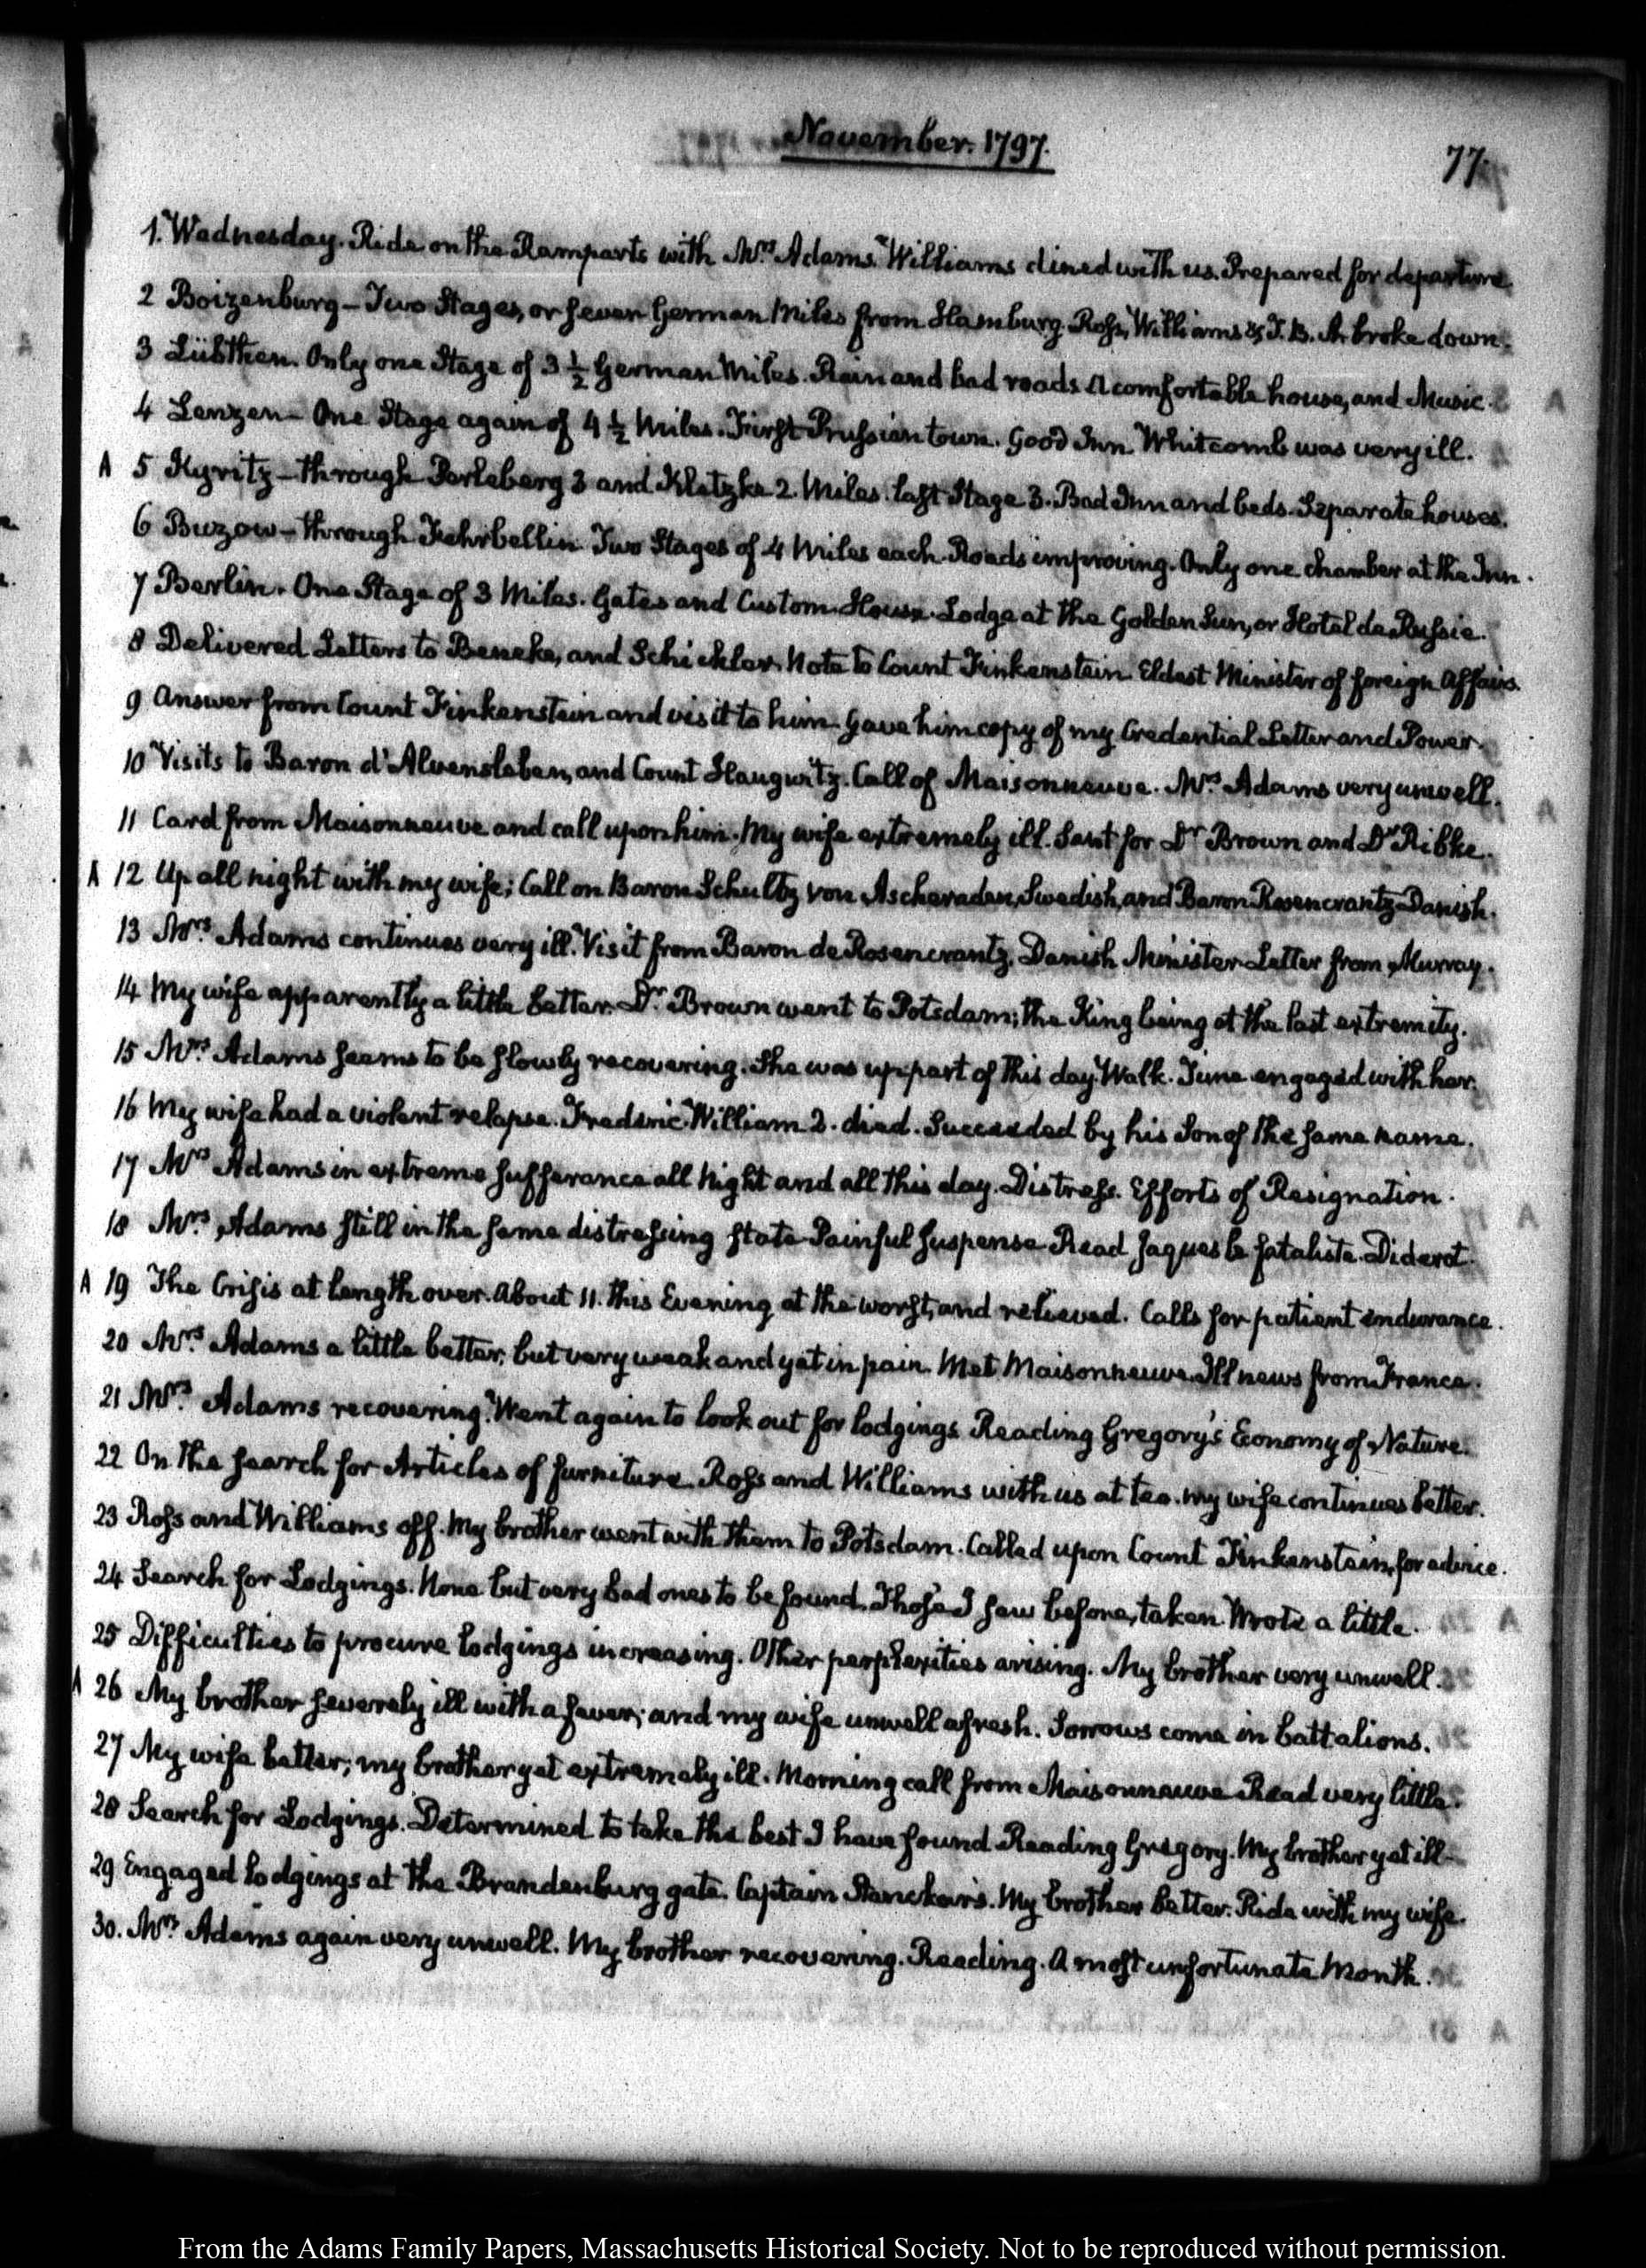 November. 1797.
77.
1. Wednesday. Ride on the Ramparts with Mrs. Adams. Williams dined with us. Prepared for departure.
2 Boizenburg – Two Stages, or seven German Miles from Hamburg. Ross, Williams & T. B. A. broke down.
3 Lübthen. Only one Stage of 3 1/2 German Miles. Rain and bad roads. A comfortable house, and Music.
4 Lenzen – One Stage again of 4 1/2 Miles. First Prussian town. Good Inn. Whitcomb was very ill.
A 5 Kyritz – through Perleberg 3 and Kletzke 2. Miles. last Stage 3. Bad Inn and beds. Separate houses.
6 Buzow – through Fehrbellin. Two Stages of 4 Miles each. Roads improving. Only one chamber at the Inn.
7 Berlin. One Stage of 3 Miles. Gates and Custom-House. Lodge at the Golden Sun, or Hotel de Russie.
8 Delivered Letters to Beneke, and Schickler. Note to Count Finkenstein. Eldest Minister of foreign Affairs.
9 Answer from Count Finkenstein and visit to him. Gave him copy of my Credential Letter and Power.
10 Visits to Baron d'Alvensleben, and Count Haugwitz. Call of Maisonneuve. Mrs. Adams very unwell.
11 Card from Maisonneuve and call upon him. My wife extremely ill. Sent for Dr Brown and Dr Ribke.
A 12 Up all night with my wife; Call on Baron Schultz von Ascheraden, Swedish, and Baron Rosencrantz Danish.
13 Mrs. Adams continues very ill. Visit from Baron de Rosencrantz, Danish Minister. Letter from Murray.
14 My wife apparently a little better. Dr. Brown went to Potsdam; the King being at the last extremity.
15 Mrs. Adams seems to be slowly recovering. She was up part of this day. Walk. Time engaged with her.
16 My wife had a violent relapse. Frederic William 2. died. Succeeded by his Son of the same name.
17 Mrs Adams in extreme sufferance all night and all this day. Distress. Efforts of Resignation.
18 Mrs. Adams still in the same distressing state. Painful suspense. Read Jaques le fataliste. Diderot.
A 19 The Crisis at length over. About 11. this Evening at the worst, and relieved. Calls for patient endurance.
20 Mrs. Adams a little better, but very weak and yet in pain. Met Maisonneuve. Ill news from France.
21 Mrs. Adams recovering. Went again to look out for lodgings. Reading Gregory's Economy of Nature.
22 On the search for Articles of furniture. Ross and Williams with us at tea. My wife continues better.
23 Ross and Williams off. My brother went with them to Potsdam. Called upon Count Finkenstein, for advice.
24 Search for Lodgings. None but very bad ones to be found. Those I saw before, taken. Wrote a little.
25 Difficulties to procure lodgings increasing. Other perplexities arising. My brother very unwell.
A 26 My brother severely ill with a fever; and my wife unwell afresh. Sorrows come in battalions.
27 My wife better; my brother yet extremely ill. Morning call from Maisonneuve. Read very little.
28 Search for Lodgings. Determined to take the best I have found. Reading Gregory. My brother yet ill.
29 Engaged lodgings at the Brandenburg gate. Captain My brother better. Ride with my wife.
30. Mrs. Adams again very unwell. My brother recovering. Reading. A most unfortunate Month.
From the Adams Family Papers, Massachusetts Historical Society. Not to be reproduced without permission.